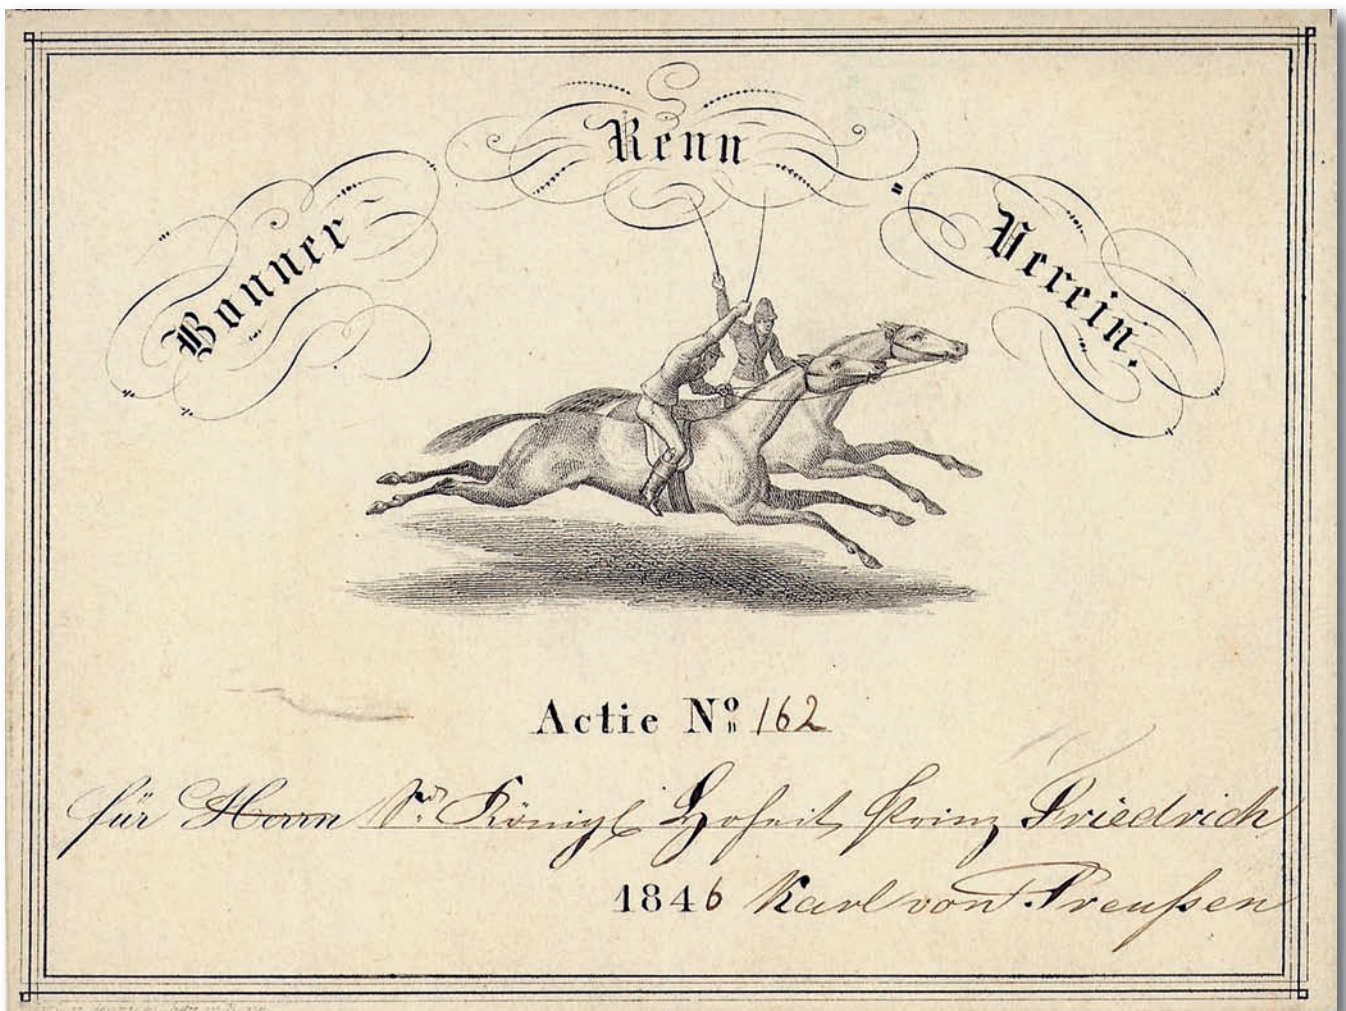 Bonner-
Renn
Verein.
Actie No 162
für Herrn Sr. Königl Hoheit Prinz Friedrich
1846 Karl von Preußen